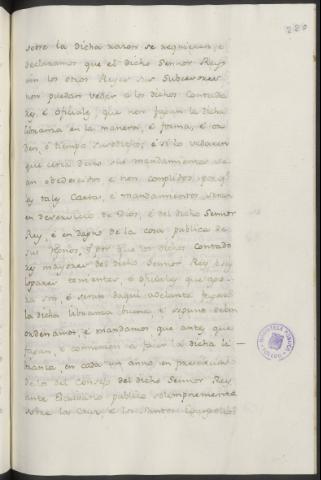 220
sobre la dicha razon se requieren, e
declaramos que el dicho Sennor Rey
nin los otros Reyes sus Subcesores
non puedan vedar a los dichos Contado
res, é oficiales, que non fagan la dicha
libranza en la manera, é forma, é or
den, é tiempo susodichos, é si lo vedaren
que cerca desto sus mandamientos se
an obedescidos e non complidos, por q.
las tales Cartas, é mandamientos serian
en deservicio de Dios, é del dicho Sennor
Rey, é en dapno de la cosa publica de
sus Regnos, é por que los dichos Contado
res mayores del dicho Sennor Rey é sus
logares tenientes, é oficiales que ago-
ra son, é seran daqui adelante fagan
la dicha libranza buena, é segund deben
ordenamos, é mandamos que ante que
fagan, é comiencen a facer la dicha li-
branza, en cada un anno, en presencia
de los del Consejo del dicho Sennor Rey
ante Escribano publico solempnemente
sobre la Cruz é los Santos Evangelios